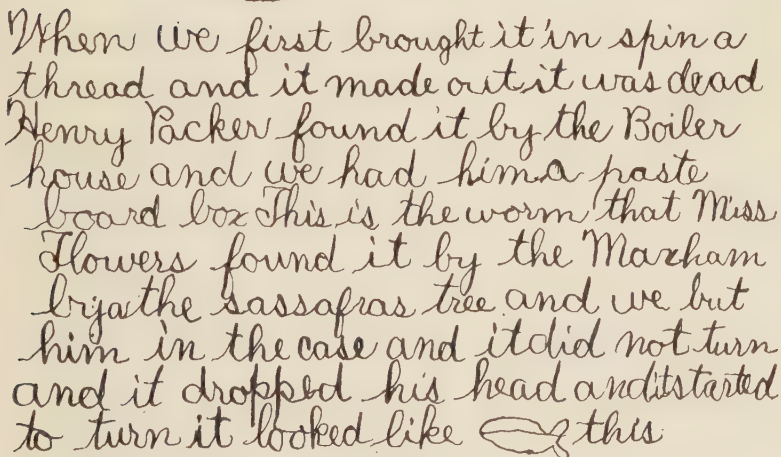 When we first brought it in spin a
thread and it made out it was dead
Henry Packer found it by the Boiler
house and we had him a paste
board box This is the worm that Miss
Flowers found it by the Marxham
by a the sassafras tree and we but
him in the case and it did not turn
and it dropped his head and it started
to turn it looked like this